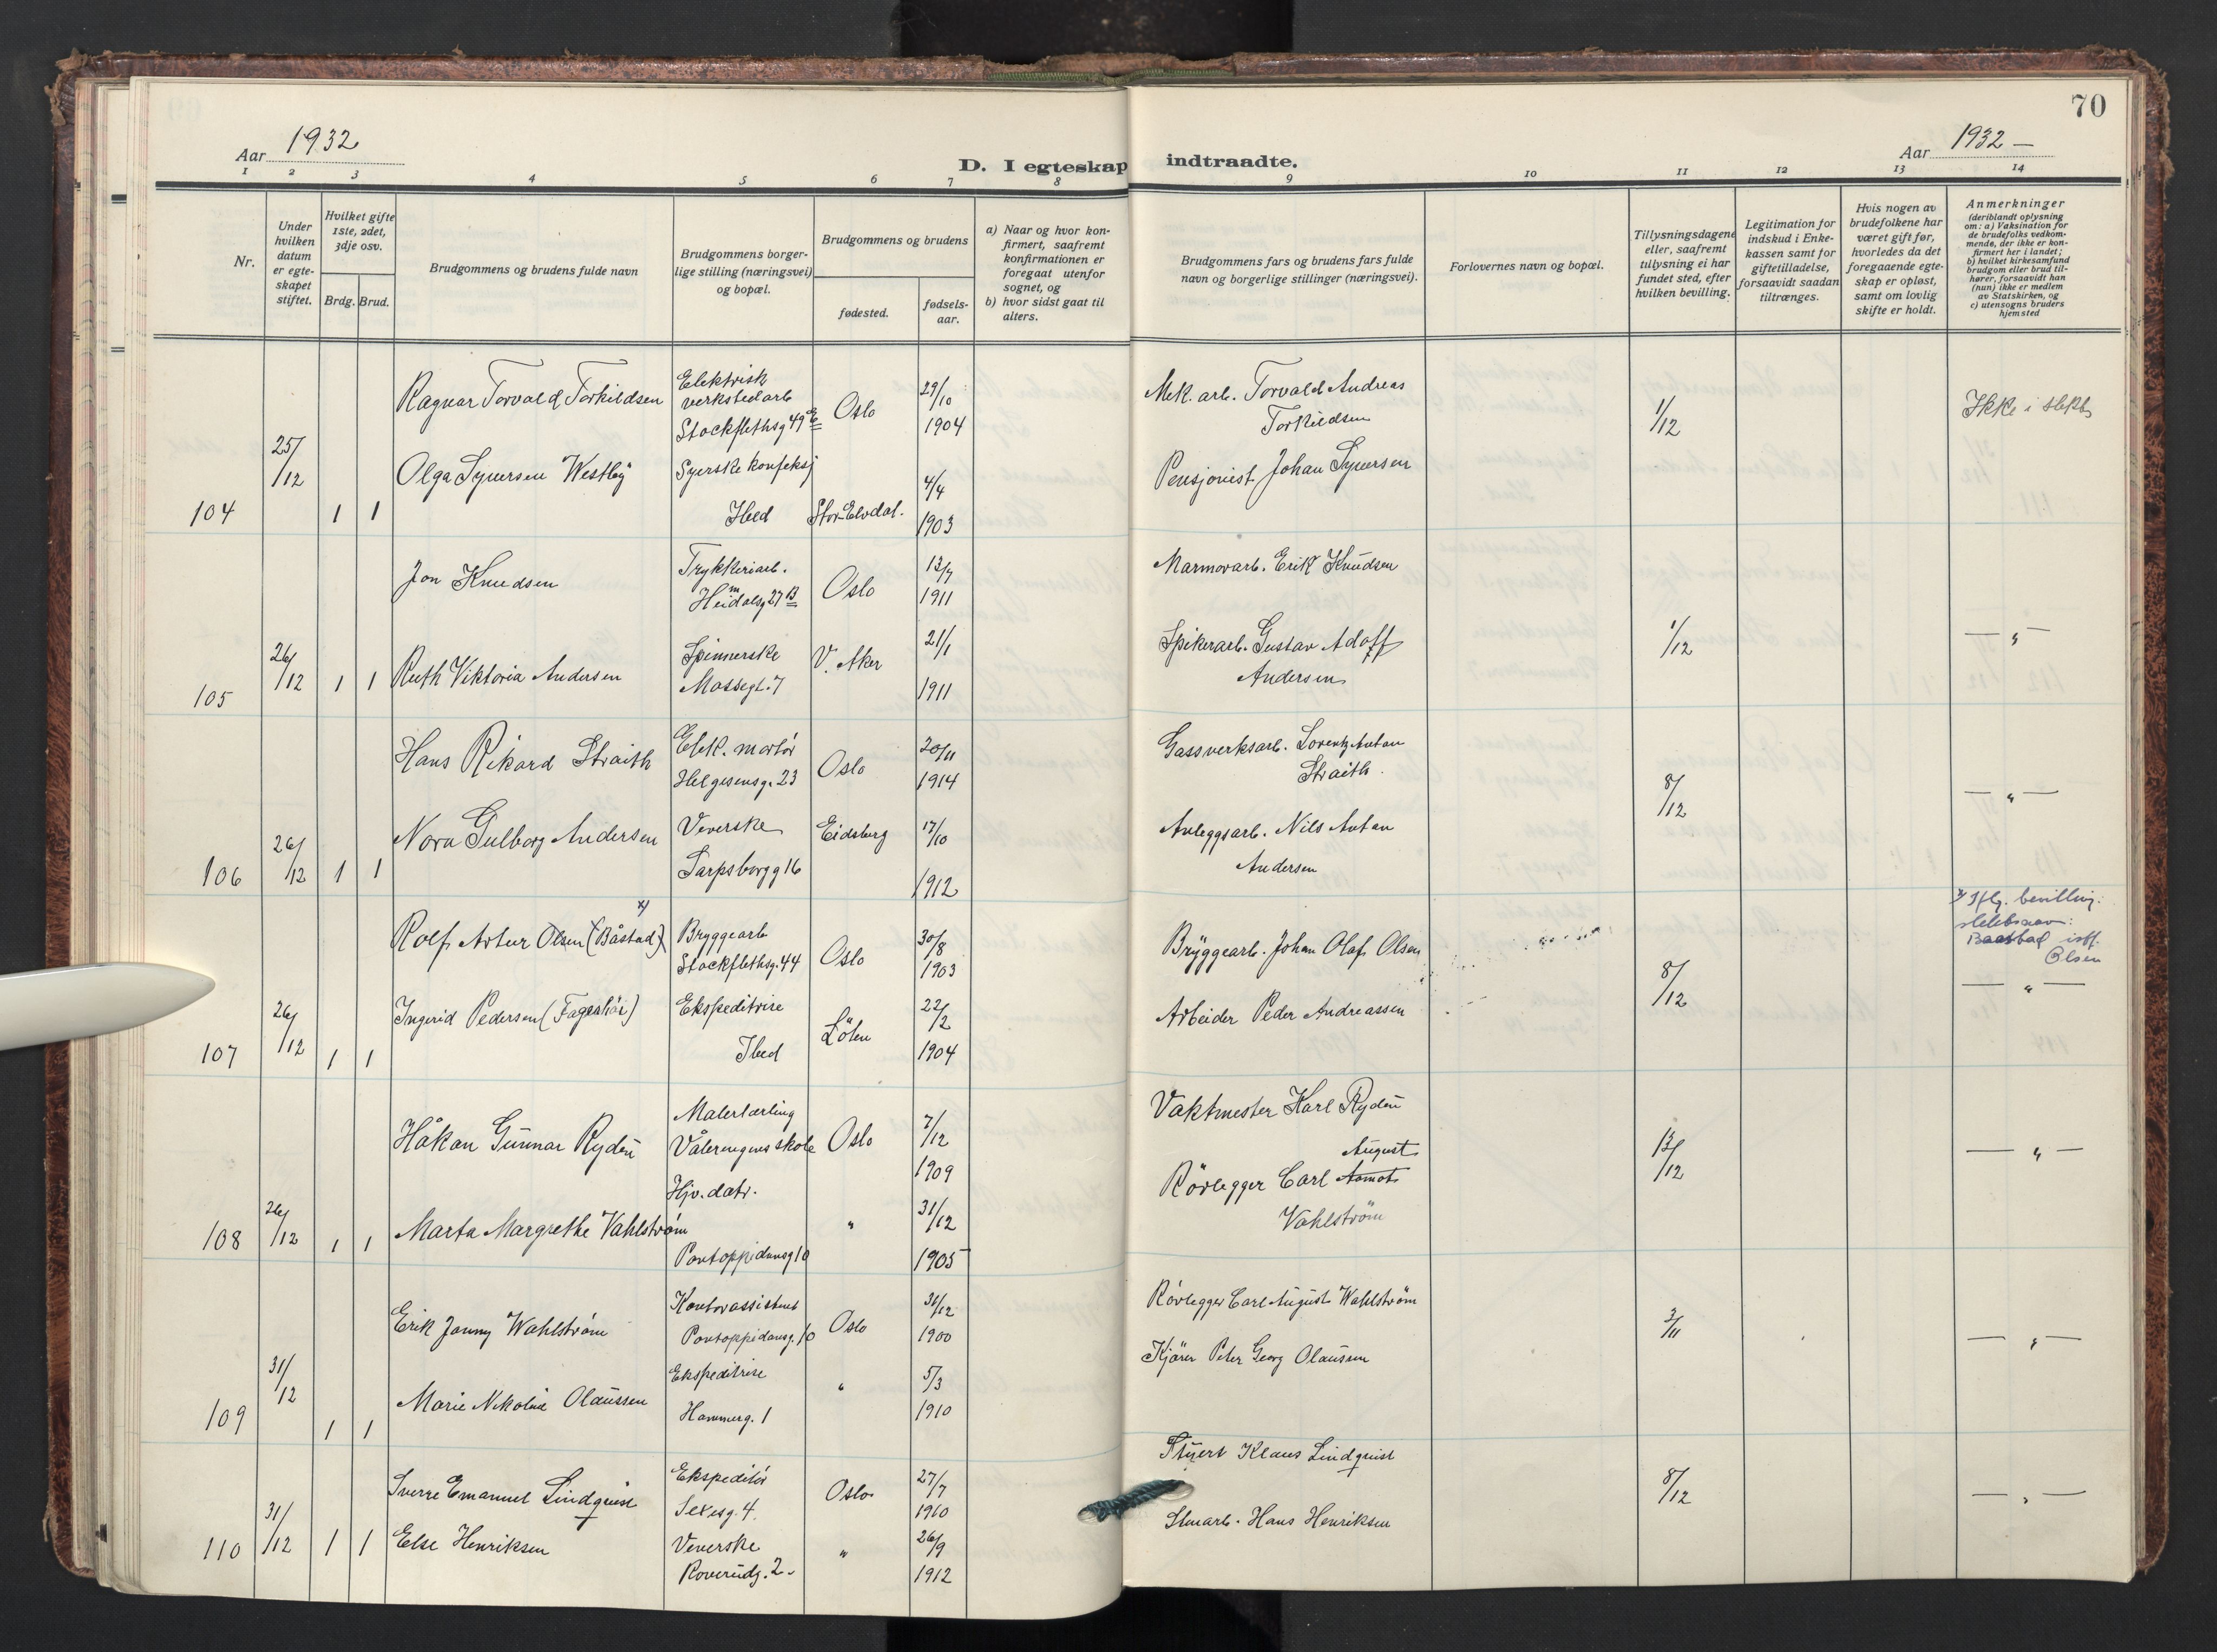 70
Aar 1932
D. I egteskap indtraadte.
Aar 1932 —
1 2 3 4 5 6 7 8 9 10 11 12 13 14
Nr.
Under
hvilken
datum
er egte-
skapet
stiftet.
Hvilket gifte
1ste, 2det,
3dje osv.
Brdg. Brud.
Brudgommens og brudens fulde navn
Brudgommens borger-
lige stilling (næringsvei)
og bopæl.
Brudgommens og brudens
fødested.
fødsels-
aar.
a) Naar og hvor kon-
firmert, saafremt
konfirmationen er
foregaat utenfor
sognet, og
b) hvor sidst gaat til
alters.
Brudgommens fars og brudens fars fulde
navn og borgerlige stillinger (næringsvei).
Forlovernes navn og bopæl.
Tillysningsdagene
eller, saafremt
tillysning ei har
fundet sted, efter
hvilken bevilling.
Legitimation for
indskud i Enke-
kassen samt for
giftetilladelse,
forsaavidt saadan
tiltrænges.
Hvis nogen av
brudefolkene har
været gift før,
hvorledes da det
foregaaende egte-
skap er opløst,
samt om lovlig
skifte er holdt.
Anmerkninger
(deriblandt oplysning
om: a) Vaksination for
de brudefolks vedkom-
mende, der ikke er kon-
firmert her i landet;
b) hvilket kirkesamfund
brudgom eller brud til-
hører, forsaavidt han
(hun) ikke er medlem
av Statskirken, og
c) utensogns bruders
hjemsted
104
25/12
1 1
Ragnar Torvald Torkildsen
Elektrisk
verkstedarb
Stockflethsg 49 E
Oslo
29/10
1904
Mek. arb. Torvald Andreas
Torkildsen
1/12
Ikke i slekt
Olga Syversen Westby
Syerske konfeksj
Ibed
Stor-Elvdal.
4/4
1903
Pensjonist Johan Syversen
105
26/12
1 1
Jon Knudsen
Trykkeriarb.
Heimdalsg 27 B
Oslo
13/7
1911
Marmorarb. Erik Knudsen
1/12
— " —
Ruth Viktoria Andersen
Spinnerske
Mossegt. 7
V. Aker
21/1
1911
Spikerarb. Gustav Adolf
Andersen
106
26/12
1 1
Hans Rikard Straith
Elek. mortør
Helgesensg. 23
Oslo
20/11
1914
Gassverksarb. Lorentz Anton
Straith.
8/12
— " —
Nora Gulborg Andersen
Veverske
Sarpsborgg 16
Eidsberg
17/10
1912
Anleggsarb. Nils Anton
Andersen
107
26/12
1 1
Rolf Artur Olsen (Båstad) x)
Bryggearb
Stockflethsg. 44
Oslo
30/8
1903
Bryggearb. Johan Olaf Olsen
8/12
x Iflg. bevilling:
slektsnavn:
Baastad istf.
Olsen
— " —
Ingerid Pedersen (Fageshøi)
Ekspeditrise
Ibed
Löten
22/2
1904
Arbeider Peder Andreassen
108
26/12
1 1
Håkan Gunnar Rydén
Malerlærling
Vålerengens skole
Oslo
7/12
1909
Vaktmester Karl Rydén
13/12
— " —
Marta Margrethe Vahlstrøm
Hjv. datr.
Pontoppidansg 10
"
31/12
1905
August
Rörlegger Carl
Vahlström
109
31/12
1 1
Erik Janny Wahlstrøm
Kontorassistent
Pontoppidansg. 10
Oslo
31/12
1900
Rörlegger Carl August Wahlstrøm
3/11
— " —
Marie Nikoline Olaussen
Ekspeditrise
Hammerg. 1
"
5/3
1910
Kjører Peter Georg Olaussen
110
31/12
1 1
Sverre Emanuel Lindquist
Ekspeditör
Sexesg. 4.
Oslo
27/7
1910
Stuert Klaus Lindquist
8/12
— " —
Else Henriksen
Veverske
Roverudg. 2.
"
26/9
1912
Stenarb. Hans Henriksen